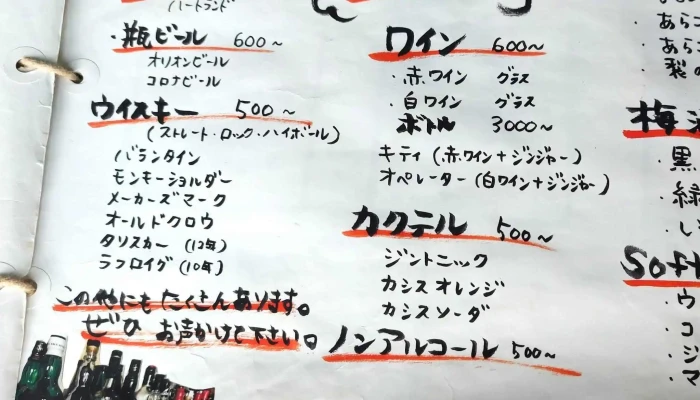 ハートランド
・瓶ビール 600〜
オリオンビール
コロナビール
ウイスキー 500〜
(ストレート・ロック・ハイボール)
バランタイン
モンキーショルダー
メーカーズマーク
オールドクロウ
タリスカー (12年)
ラフロイグ (10年)
この他にもたくさんあります。
ぜひ お声かけて下さい。
ワイン 600〜
・赤ワイン グラス
・白ワイン グラス
ボトル 3000〜
キティ (赤ワイン+ジンジャー)
オペレーター (白ワイン+ジンジャー)
カクテル 500〜
ジントニック
カシスオレンジ
カシスソーダ
ノンアルコール 500〜
・あらご
・あらご
・梨の
梅酒
・黒
・緑
・し
Soft
・ウ
・コ
・ジ
・マ